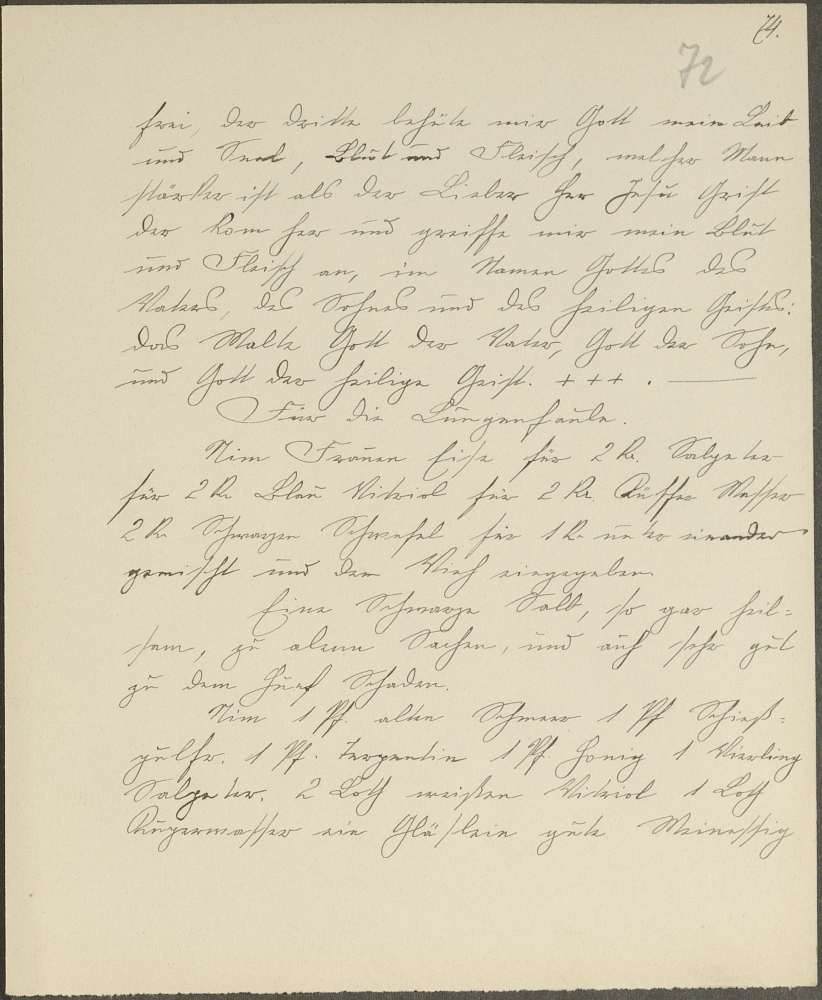 74.
72
frei, der dritte behüte mir Gott mein Leib
und Seel, Blut und Fleisch, welcher Mann
stärker ist als der Lieber Her Jesu Grist
der kom her und greiffe mir mein Blut
und Fleisch an, im Namen Gottes des
Vaters, des Sohnes und des heiligen Geistes:
das Walte Gott der Vater, Gott der Sohn,
und Gott der heilige Geist. + + + . —
Für die Lungenfaule.
Nim Frauen Eise für 2 Kr. Salpeter
für 2 Kr Blau Vitriol für 2 Kr. Kuffer Wasser
2 Kr Schwarzen Schwefel für 1 Kr unter einander
gemischt und dem Vieh eingegeben.
Eine Schwarze Salb, so gar heil=
sam, zu alenn Sachen, und auch sehr gut
zu dem Huef Schaden.
Nim 1 Pf. alten Schmeer 1 Pf Schieß=
pulfr. 1 Pf. Terpentin 1 Pf. Honig 1 Vierling
Salpeter. 2 Loth weißen Vitriol 1 Loth
Kupermasser ein Gläslein gute Weinessig